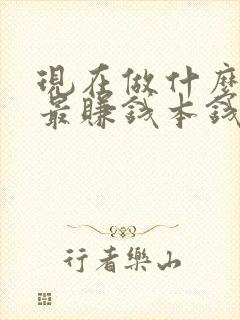 現在做什麼
最賺錢本錢
行者樂山